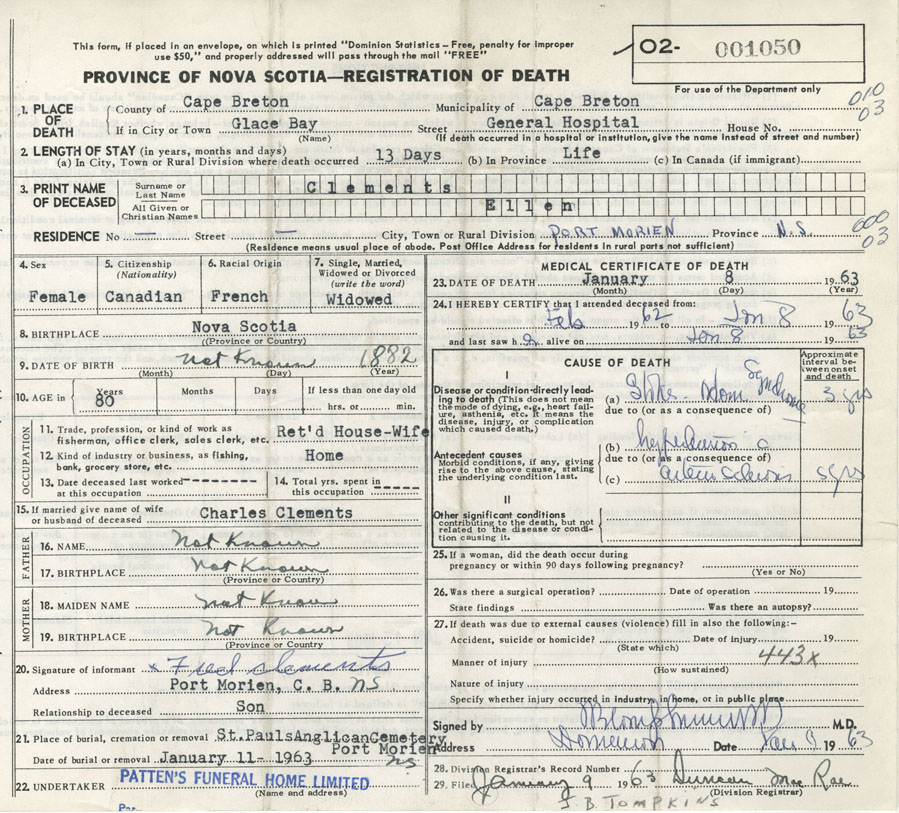 This form, if placed in an envelope, on which is printed "Dominion Statistics – Free, penalty for improper
use $50," and properly addressed will pass through the mail "FREE"
O2- 001050
For use of the Department only
PROVINCE OF NOVA SCOTIA—REGISTRATION OF DEATH
010
03
1. PLACE OF DEATH
County of Cape Breton Municipality of Cape Breton
If in City or Town Glace Bay Street General Hospital House No.
(Name) (If death occurred in a hospital or institution, give the name instead of street and number)
2. LENGTH OF STAY (in years, months and days)
(a) In City, Town or Rural Division where death occurred 13 Days (b) In Province Life (c) In Canada (if immigrant)
3. PRINT NAME OF DECEASED
Surname or Last Name Clements
All Given or Christian Names Ellen
RESIDENCE No — Street — City, Town or Rural Division PORT MORIEN Province N.S.
000
03
(Residence means usual place of abode. Post Office Address for residents in rural parts not sufficient)
4. Sex
Female
5. Citizenship
(Nationality)
Canadian
6. Racial Origin
French
7. Single, Married,
Widowed or Divorced
(write the word)
Widowed
8. BIRTHPLACE Nova Scotia
(Province or Country)
9. DATE OF BIRTH Not Known 1882
(Month) (Day) (Year)
10. AGE in Years 80 Months Days If less than one day old
hrs. or min.
OCCUPATION
11. Trade, profession or kind of work as
fisherman, office clerk, sales clerk, etc. Ret'd House-Wife
12. Kind of industry or business, as fishing,
bank, grocery store, etc. Home
13. Date deceased last worked
at this occupation
14. Total yrs. spent in
this occupation
15. If married give name of wife
or husband of deceased Charles Clements
FATHER
16. NAME Not Known
17. BIRTHPLACE Not Known
(Province or Country)
MOTHER
18. MAIDEN NAME Not Know
19. BIRTHPLACE Not Known
(Province or Country)
20. Signature of informant x Fred Clements
Address Port Morien, C. B. NS
Relationship to deceased Son
21. Place of burial, cremation or removal St.PaulsAnglicanCemetery
Port Morien
Date of burial or removal January 11- 1963 NS
22. UNDERTAKER PATTEN'S FUNERAL HOME LIMITED
(Name and address)
Per
MEDICAL CERTIFICATE OF DEATH
23. DATE OF DEATH January 8 1963
(Month) (Day) (Year)
24. I HEREBY CERTIFY that I attended deceased from:
Feb 1962 to Jan 8 1963
and last saw h alive on Jan 8 1963
CAUSE OF DEATH
Approximate
interval be-
tween onset
and death
I
Disease or condition directly lead-
ing to death (This does not mean
the mode of dying, e.g., heart fail-
ure, asthenia, etc. It means the
disease, injury, or complication
which caused death.)
(a) Stokes-Adam Syndrome 3 yrs
due to (or as a consequence of)
Antecedent causes
Morbid conditions, if any, giving
rise to the above cause, stating
the underlying condition last.
(b)
due to (or as a consequence of)
(c) yrs
II
Other significant conditions
contributing to the death, but not
related to the disease or condi-
tion causing it.
25. If a woman, did the death occur during
pregnancy or within 90 days following pregnancy?
(Yes or No)
26. Was there a surgical operation? Date of operation 19
State findings Was there an autopsy?
27. If death was due to external causes (violence) fill in also the following:–
Accident, suicide or homicide? Date of injury 19
(State which)
443x
Manner of injury
(How sustained)
Nature of injury
Specify whether injury occurred in industry, in home, or in public place
Signed by M.D.
Address Dominion Date Jan 9 1963
28. Division Registrar's Record Number
29. Filed January 9 1963 Duncan MacRae
(Division Registrar)
J B TOMPKINS